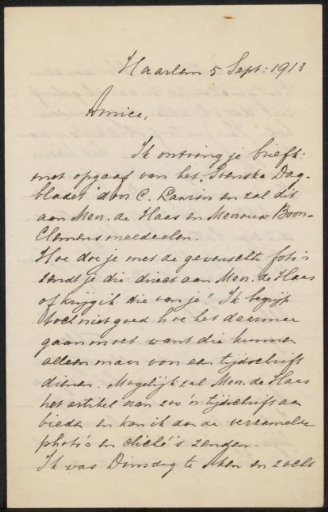 Haarlem 5 Sept: 1913
Amice,
Ik ontving je briefk:
met opgaaf van het Svenska Dag-
bladet door C. en zal dit
aan Mon. de Haas en Mevrouw Boon-
Clemens meedeelen.
Hoe doe je met de gewenschte foto's
zendt je die direct aan Mon. de Haas
of krijg ik die van je? Ik begrijp
toch niet goed hoe het daarmee
gaan moet want die kunnen
alleen maar voor een tijdschrift
dienen. Mogelijk zal Mon. de Haas
het artikel aan zoo'n tijdschrift aan
bieden en kan ik dan de verzamelde
photo's en cliché's zenden.
Ik was Dinsdag te en zocht